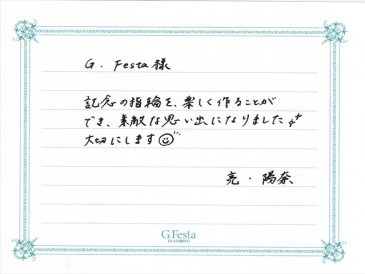 G. Festa 様
記念の指輪を、楽しく作ることが
でき、素敵な思い出になりました
大切にします
亮・陽奈
G.Festa